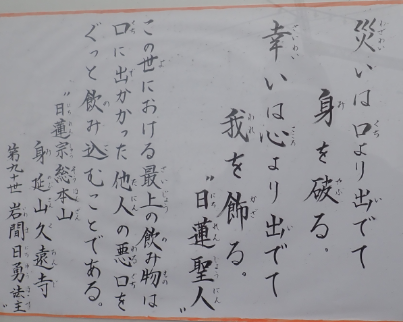 災いは口より出でて
身を破る。
幸いは心より出でて
我を飾る。
"日蓮聖人"
この世における最上の飲み物は
口に出かかった他人の悪口を
ぐっと飲み込むことである。
"日蓮宗総本山
身延山久遠寺
第九十世 岩間日勇法主"